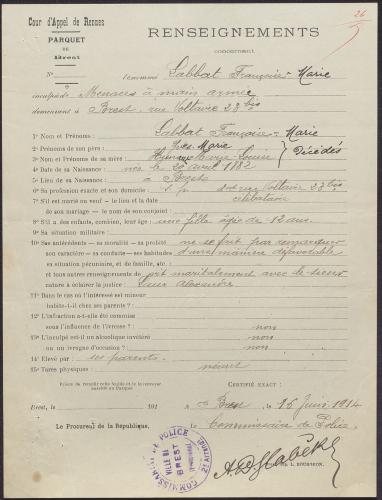 Cour d'Appel de Rennes
PARQUET
DE
Brest
26
RENSEIGNEMENTS
concernant
N° le nommé Labbat Françoise-Marie
inculpé de Menaces à main armée
demeurant à Brest, rue Voltaire 23 bis
1° Nom et Prénoms : Labbat Françoise-Marie
2° Prénoms de son père : Yves-Marie
3° Nom et Prénoms de sa mère : Marie-Louise } Décédés
4° Date de sa Naissance : née le 20 avril 1882
5° Lieu de sa Naissance : à Brest
6° Sa profession exacte et son domicile : s.p. rue Voltaire 23 bis
7° S'il est marié ou veuf - le lieu et la date célibataire
de son mariage - le nom de son conjoint :
8° S'il a des enfants, combien, leur âge : une fille âgée de 12 ans.
9° Sa situation militaire :
10° Ses antécédents - sa moralité - sa probité ne se fait pas remarquer
son caractère - sa conduite - ses habitudes d'une manière défavorable
sa situation pécuniaire, et de famille, etc. :
et tous autres renseignements de vit maritalement avec le sieur
nature à éclairer la justice : Alexandre
11° Dans le cas où l'intéressé est mineur
habite-t-il chez ses parents ?
12° L'infraction a-t-elle été commise
sous l'influence de l'ivresse ? non
13° L'inculpé est-il un alcoolique invétéré non
ou un ivrogne d'occasion ? non
14° Elevé par : ses parents.
15° Tares physiques néant
Prière de remplir cette feuille et de la renvoyer
aussitôt au Parquet
CERTIFIÉ EXACT :
Brest, le 191
à Brest 15 Juin 1914
Le Procureur de la République,
Le Commissaire de Police
COMMISSARIAT DE POLICE
VILLE DE
BREST